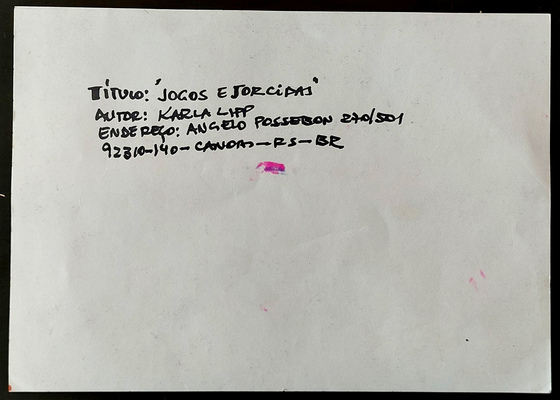 TÍTULO: "JOGOS E TORCIDAS"
AUTOR: KARLA LIPP
ENDEREÇO: ANGELO POSSEBON 270/501
92310-140-CANOAS-RS-BR